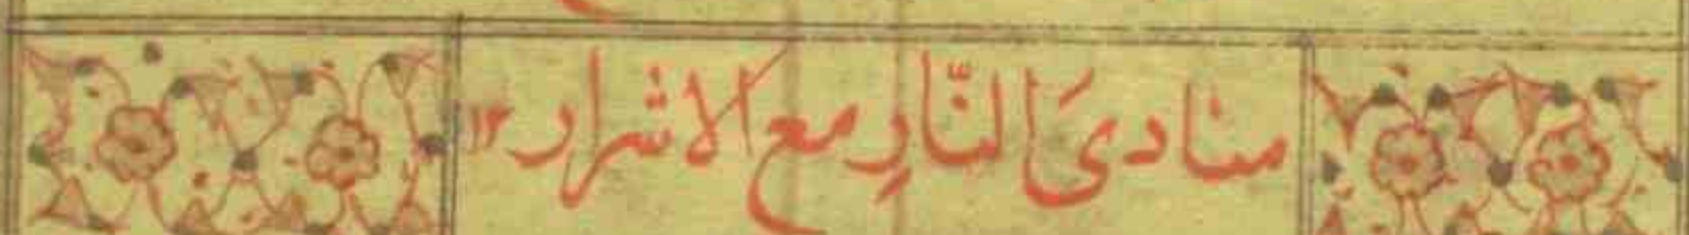 منادىَ النّارِ مع الاشرار ۱۲